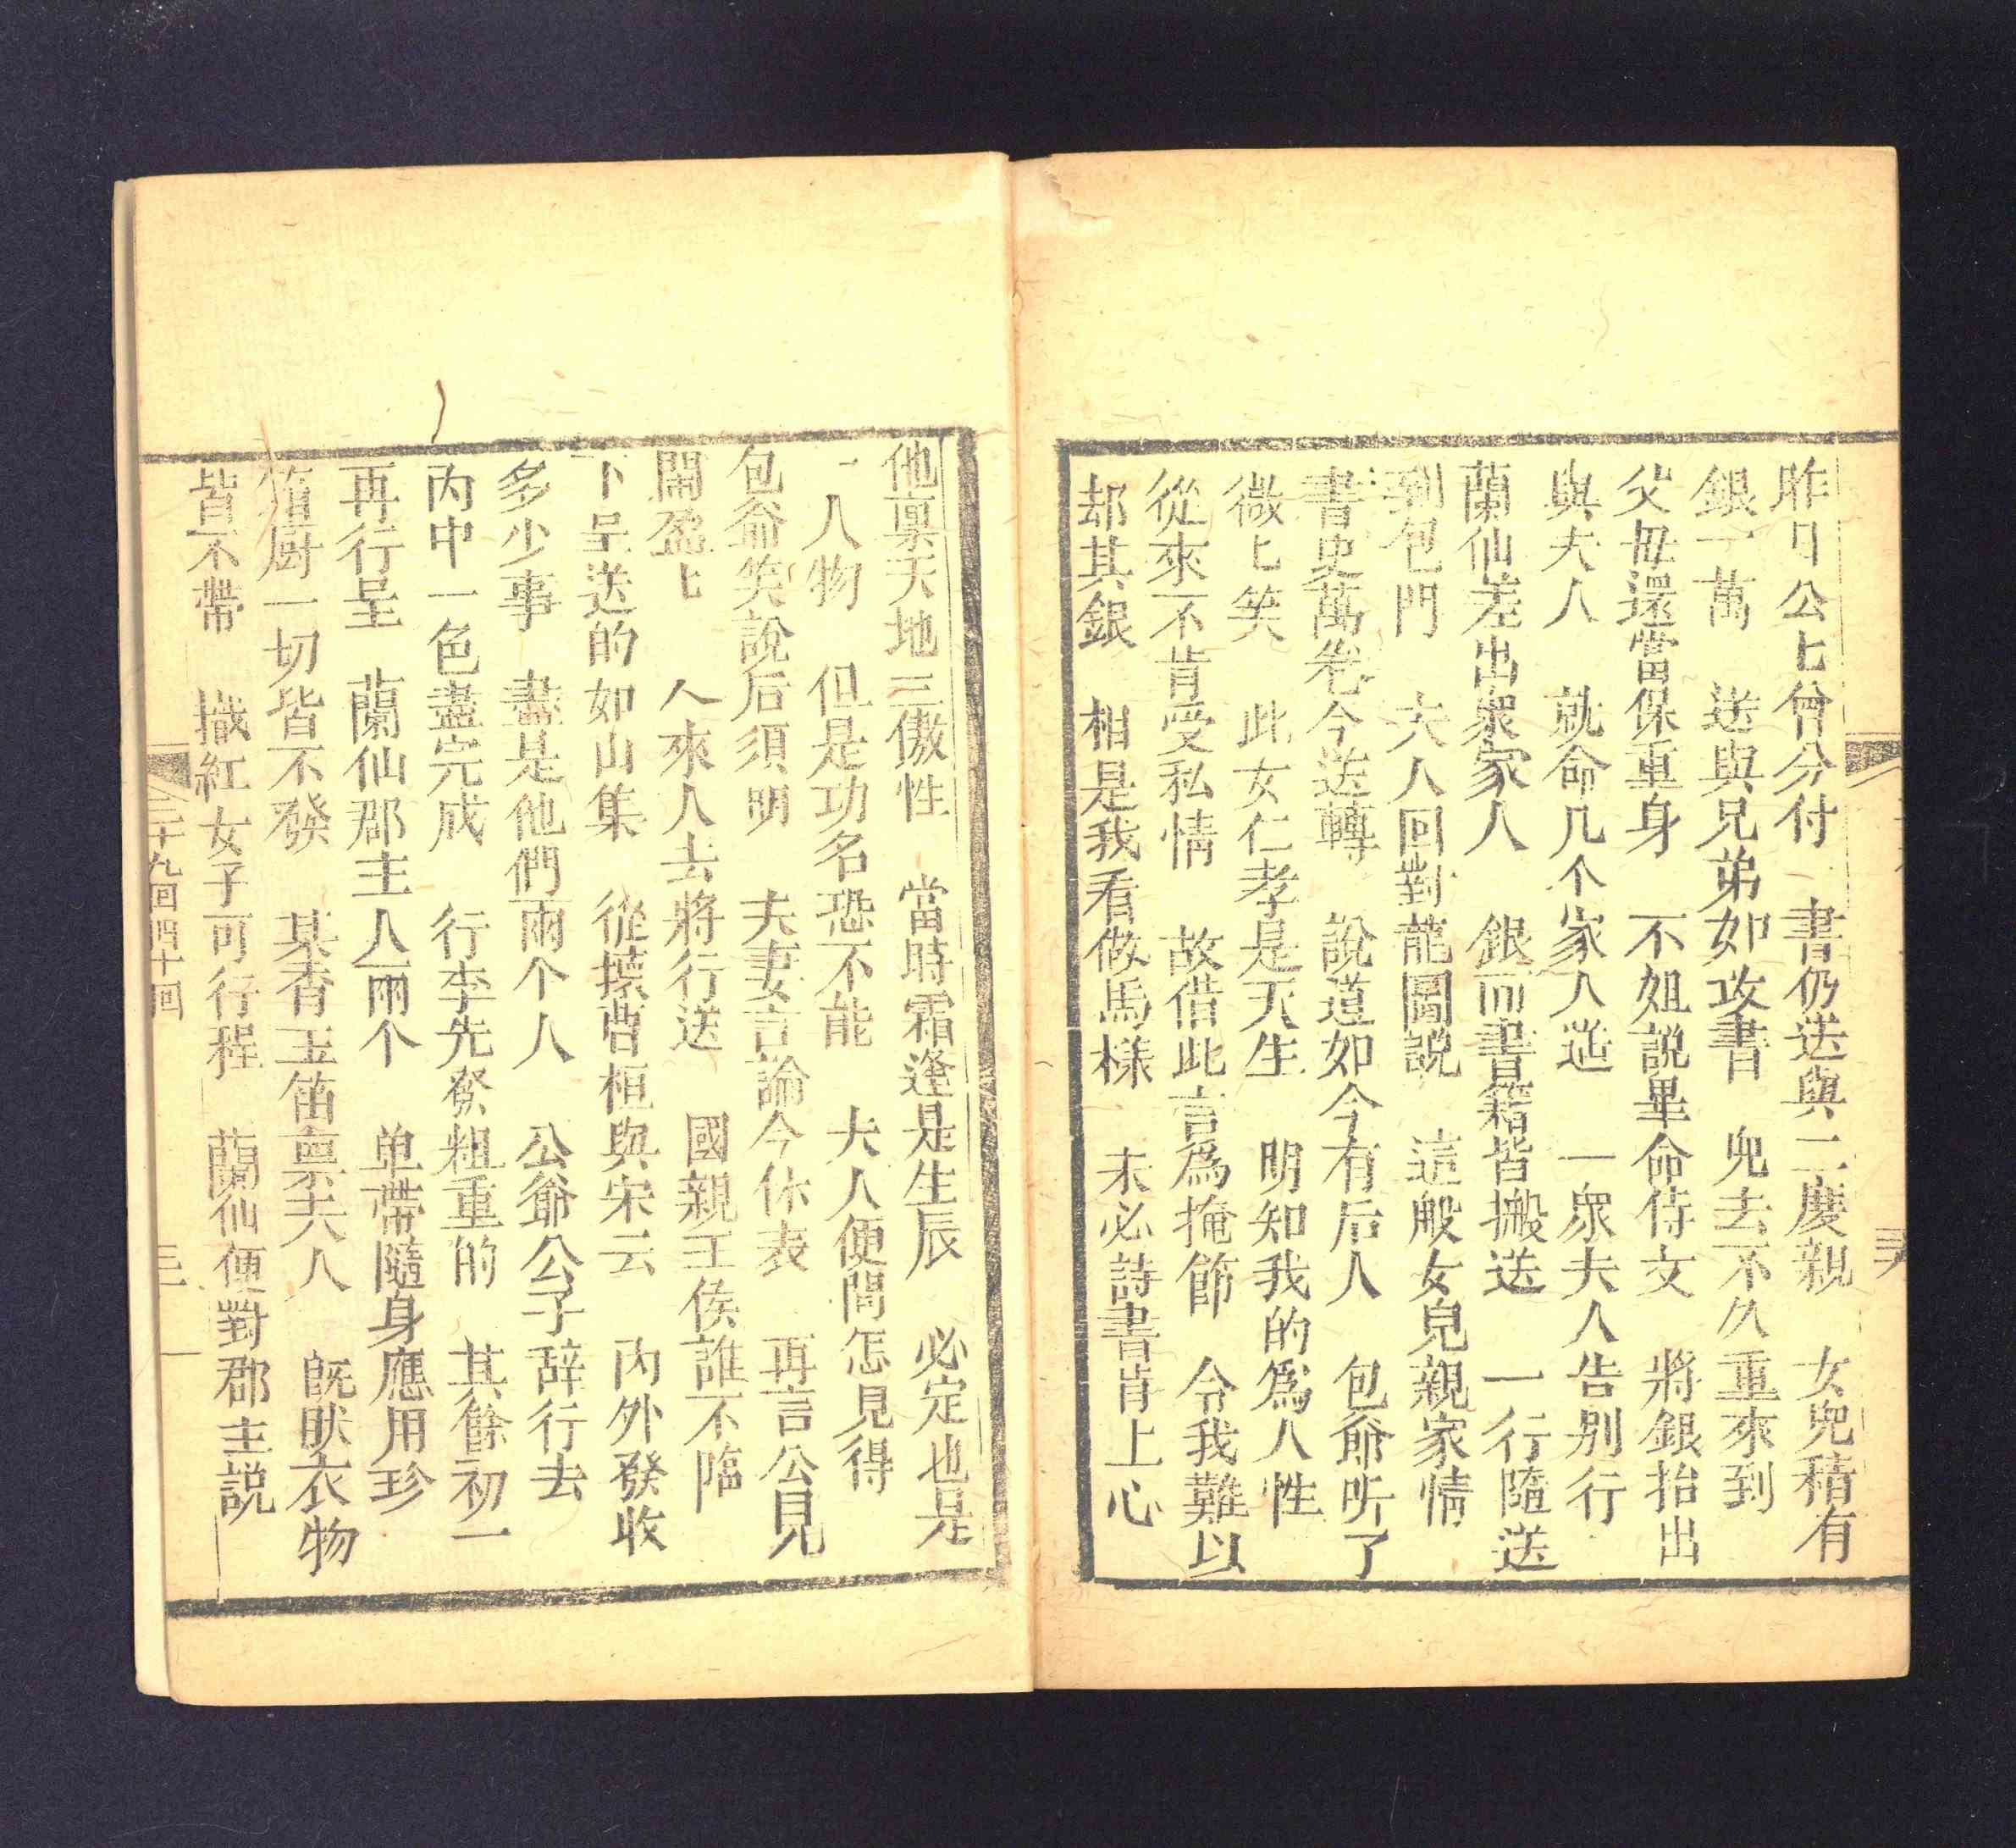 昨日公匕曾分付　書仍送與二慶親　女兜積有
銀一萬　送與兄弟如攻書　兜去不久重來到
父毋還當保重身　不姐說畢命侍文　將銀抬出
與夫人　就命几个家人送　一衆夫人告别行
蘭仙差出衆家人　銀而書籍皆搬送　一行隨送
到包門　大人回對龍圖説　這般女兒親家情
書史萬卷今送轉　說道如今有后人　包爺听了
微匕笑　此女仁孝是天生　明知我的爲人性
從來不肯受私情　故借此言爲掩飾　令我難以
却其銀　相是我看做馬樣　未必詩書肯上心
他禀天地三傲性　當時霜逢是生辰　必定也是
一人物　但是功名恐不能　夫人便問怎見得
包爺笑說后須明　夫妻言論今休表　再言公見
鬧盈匕　人來人去將行送　國親王侯誰不臨
下呈送的如山集　從壞酉桓與宋云　内外發收
多少事　盡是他們兩个人　公爺公子辞行去
丙中一色盡完成　行李先發粗重的　其餘初一
再行呈　蘭仙郡主人兩个　单帶隨身應用珍
箱厨一切皆不發　某香玉笛禀夫人　既眹衣物
皆不帶　撠紅女子可行程　蘭仙便對郡主説
三十九回四十回　三一